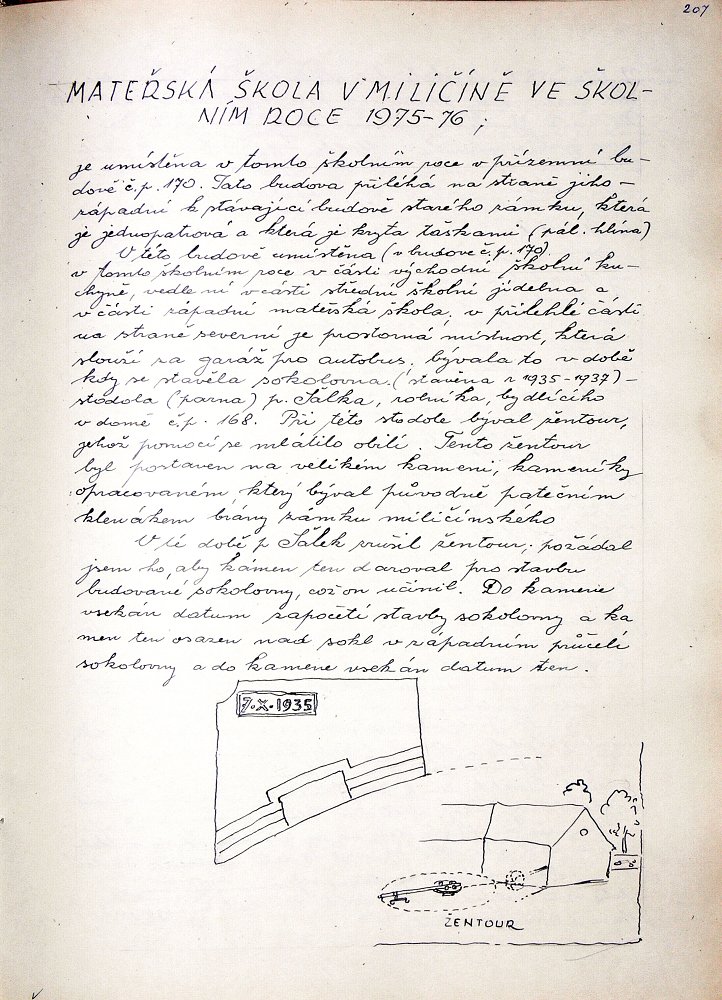 207
MATEŘSKÁ ŠKOLA V MILIČÍNĚ VE ŠKOL-
NÍM ROCE 1975-76;
je umístěna v tomto školním roce v přízemní bu-
dově č.p. 170. Tato budova přiléhá na straně jiho-
západní k stávající budově starého zámku, která
je jednopatrová a která je kryta taškami (pál. hlína)
V této budově umístěna (v budově č.p. 170)
v tomto školním roce v části východní školní ku-
chyně, vedle ní v části střední školní jídelna a
v části západní mateřská škola, v přilehlé části
na straně severní je prostorná místnost, která
slouží za garáž pro autobus, bývala to v době
kdy se stavěla sokolovna (stavěna r 1935-1937) -
stodola (parna) p. Šálka, rolníka, bydlícího
v domě č.p. 168. Při této stodole býval žentour,
jehož pomocí se mlátilo obilí. Tento žentour
byl postaven na velikém kameni, kameníky
opracovaném, který býval původně patečním
klenákem brány zámku miličínského
V té době p Šálek zrušil žentour; požádal
jsem ho, aby kámen ten daroval pro stavbu
budované sokolovny, což on učinil. Do kamene
vsekán datum započetí stavby sokolovny a ka
men ten osazen nad sokl v západním průčelí
sokolovny a do kamene vsekán datum ten.
7.X.1935
ŽENTOUR